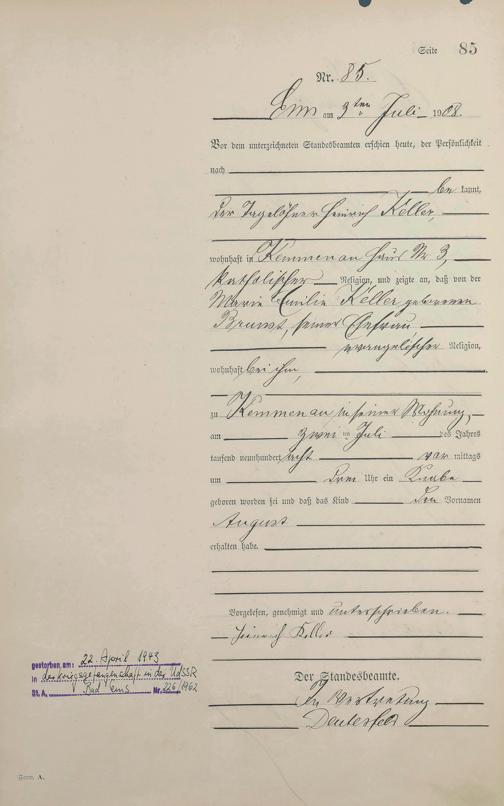 Seite 85
Nr. 85.
Ems am 3ten Juli 1908.
Vor dem unterzeichneten Standesbeamten erschien heute, der Persönlichkeit
nach
be kannt,
der Tagelöhner Heinrich Keller,
wohnhaft in Kemmenau Haus Nr. 3,
katholischer Religion, und zeigte an, daß von der
Marie Emilie Keller geborenen
seiner Ehefrau,
evangelischer Religion,
wohnhaft bei ihm,
zu Kemmenau in seiner Wohnung,
am zwei ten Juli des Jahres
tausend neunhundert acht vor mittags
um drei Uhr ein Knabe
geboren worden sei und daß das Kind den Vornamen
August
erhalten habe.
Vorgelesen, genehmigt und unterschrieben.
Heinrich Keller
Der Standesbeamte.
In Vertretung
gestorben am: 22. April 1943
in der Kriegsgefangenschaft in der UdSSR
St. A. Bad Ems Nr. 226/1962
Form. A.